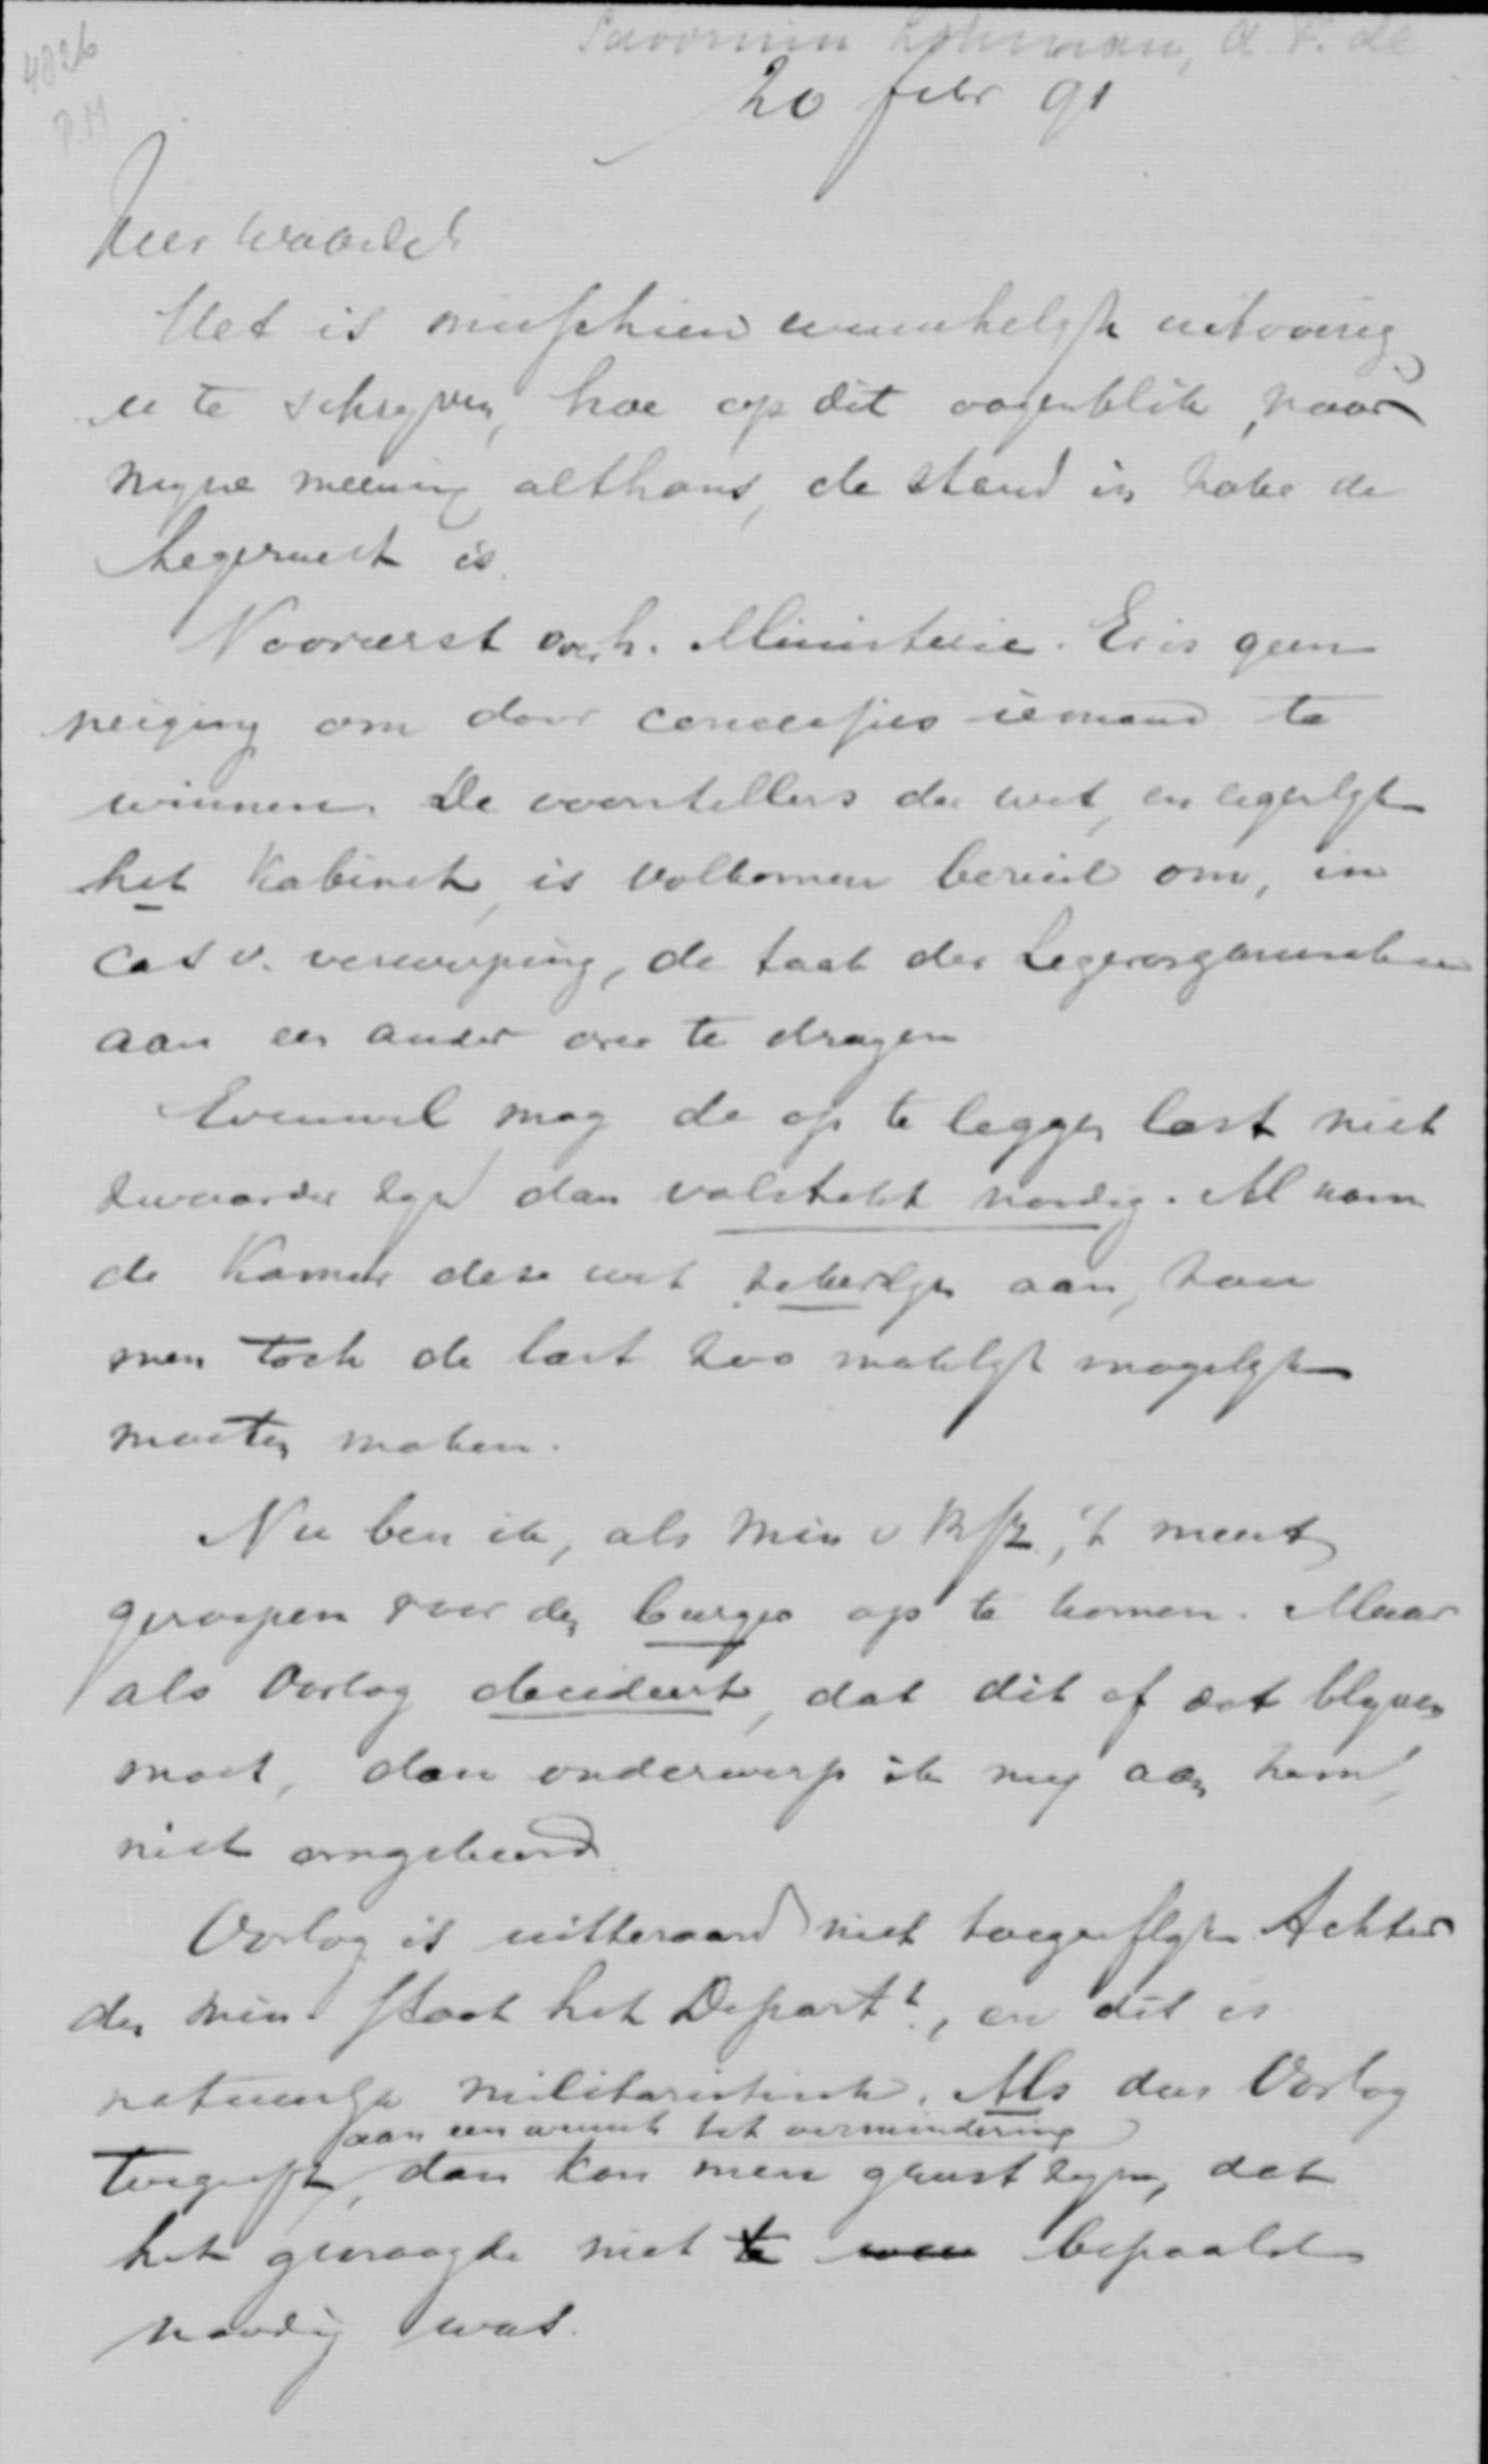 4826
P.M
Savornin Lohman, A. F. de
20 febr 91
Zeer Waarde
Het is misschien wenschelijk uitvoerig
u te schrijven, hoe op dit oogenblik, naar
mijne meening althans, de stand in zake de
Legerwet is.
Vooreerst h. Ministerie. Er is geen
neiging om door concessies iemand te
winnen. De voorstellers der wet, en eigenlijk
het Kabinet, is volkomen bereid om, in
cas v. verwerping, de taak der Legerorganisatie
aan een ander over te dragen
Evenwel mag de op te leggen last niet
zwaarder zijn dan volstrekt noodig. Al nam
de Kamer deze wet zekerlijk aan, zou
men toch de last zoo matelijk mogelijk
moeten maken.
Nu ben ik, als Min v BZ, 't meest
geroepen voor den burger op te komen. Maar
als Oorlog decideert, dat dit of dat blijven
moet, dan onderwerp ik mij aan hem,
niet omgekeerd
Oorlog is uitteraard niet toegeeflijk. Achter
den min. staat het Depart.t, en dit is
natuurlijk militaristisch. Als dus Oorlog
aan een wensch tot vermindering
toegeeft, dan kan men gerust zijn, dat
het gevraagde niet bepaald
noodig was.